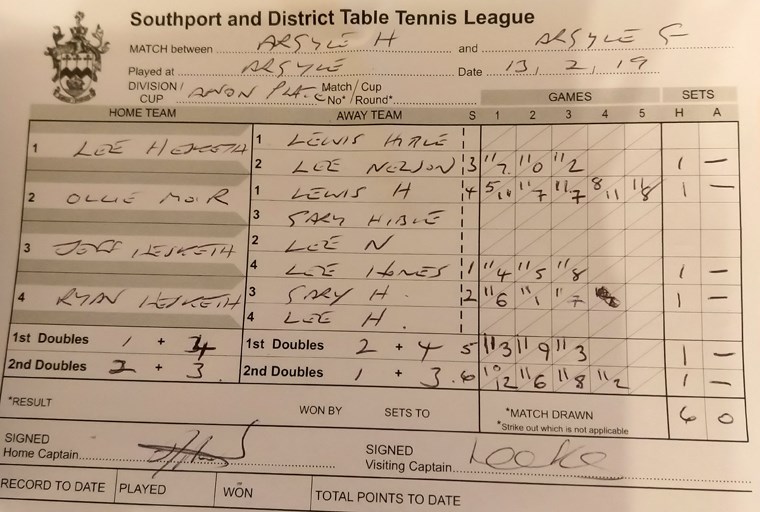 Southport and District Table Tennis League
MATCH between ARGYLE H and ARGYLE G
Played at ARGYLE Date 13, 2, 19
DIVISION / CUP Match/Cup No* / Round*
HOME TEAM AWAY TEAM S GAMES 1 2 3 4 5 SETS H A
1 LEE HESKETH 1 LEWIS HIBLE
2 LEE NELSON 3 11/7 11/0 11/2 1 —
2 OLLIE MOIR 1 LEWIS H 4 5/11 11/7 11/7 8/11 11/8 1 —
3 GARY HIBLE
3 JOFF HESKETH 2 LEE N
4 LEE HOMES 1 11/4 11/5 11/8 1 —
4 RYAN HESKETH 3 GARY H. 2 11/6 11/1 11/7 1 —
4 LEE H.
1st Doubles 1 + 4 1st Doubles 2 + 4 5 11/3 11/9 11/3 1 —
2nd Doubles 2 + 3 2nd Doubles 1 + 3. 6 10/12 11/6 11/8 11/2 1 —
*RESULT WON BY SETS TO *MATCH DRAWN 6 0
*Strike out which is not applicable
SIGNED Home Captain
SIGNED Visiting Captain
RECORD TO DATE PLAYED WON TOTAL POINTS TO DATE